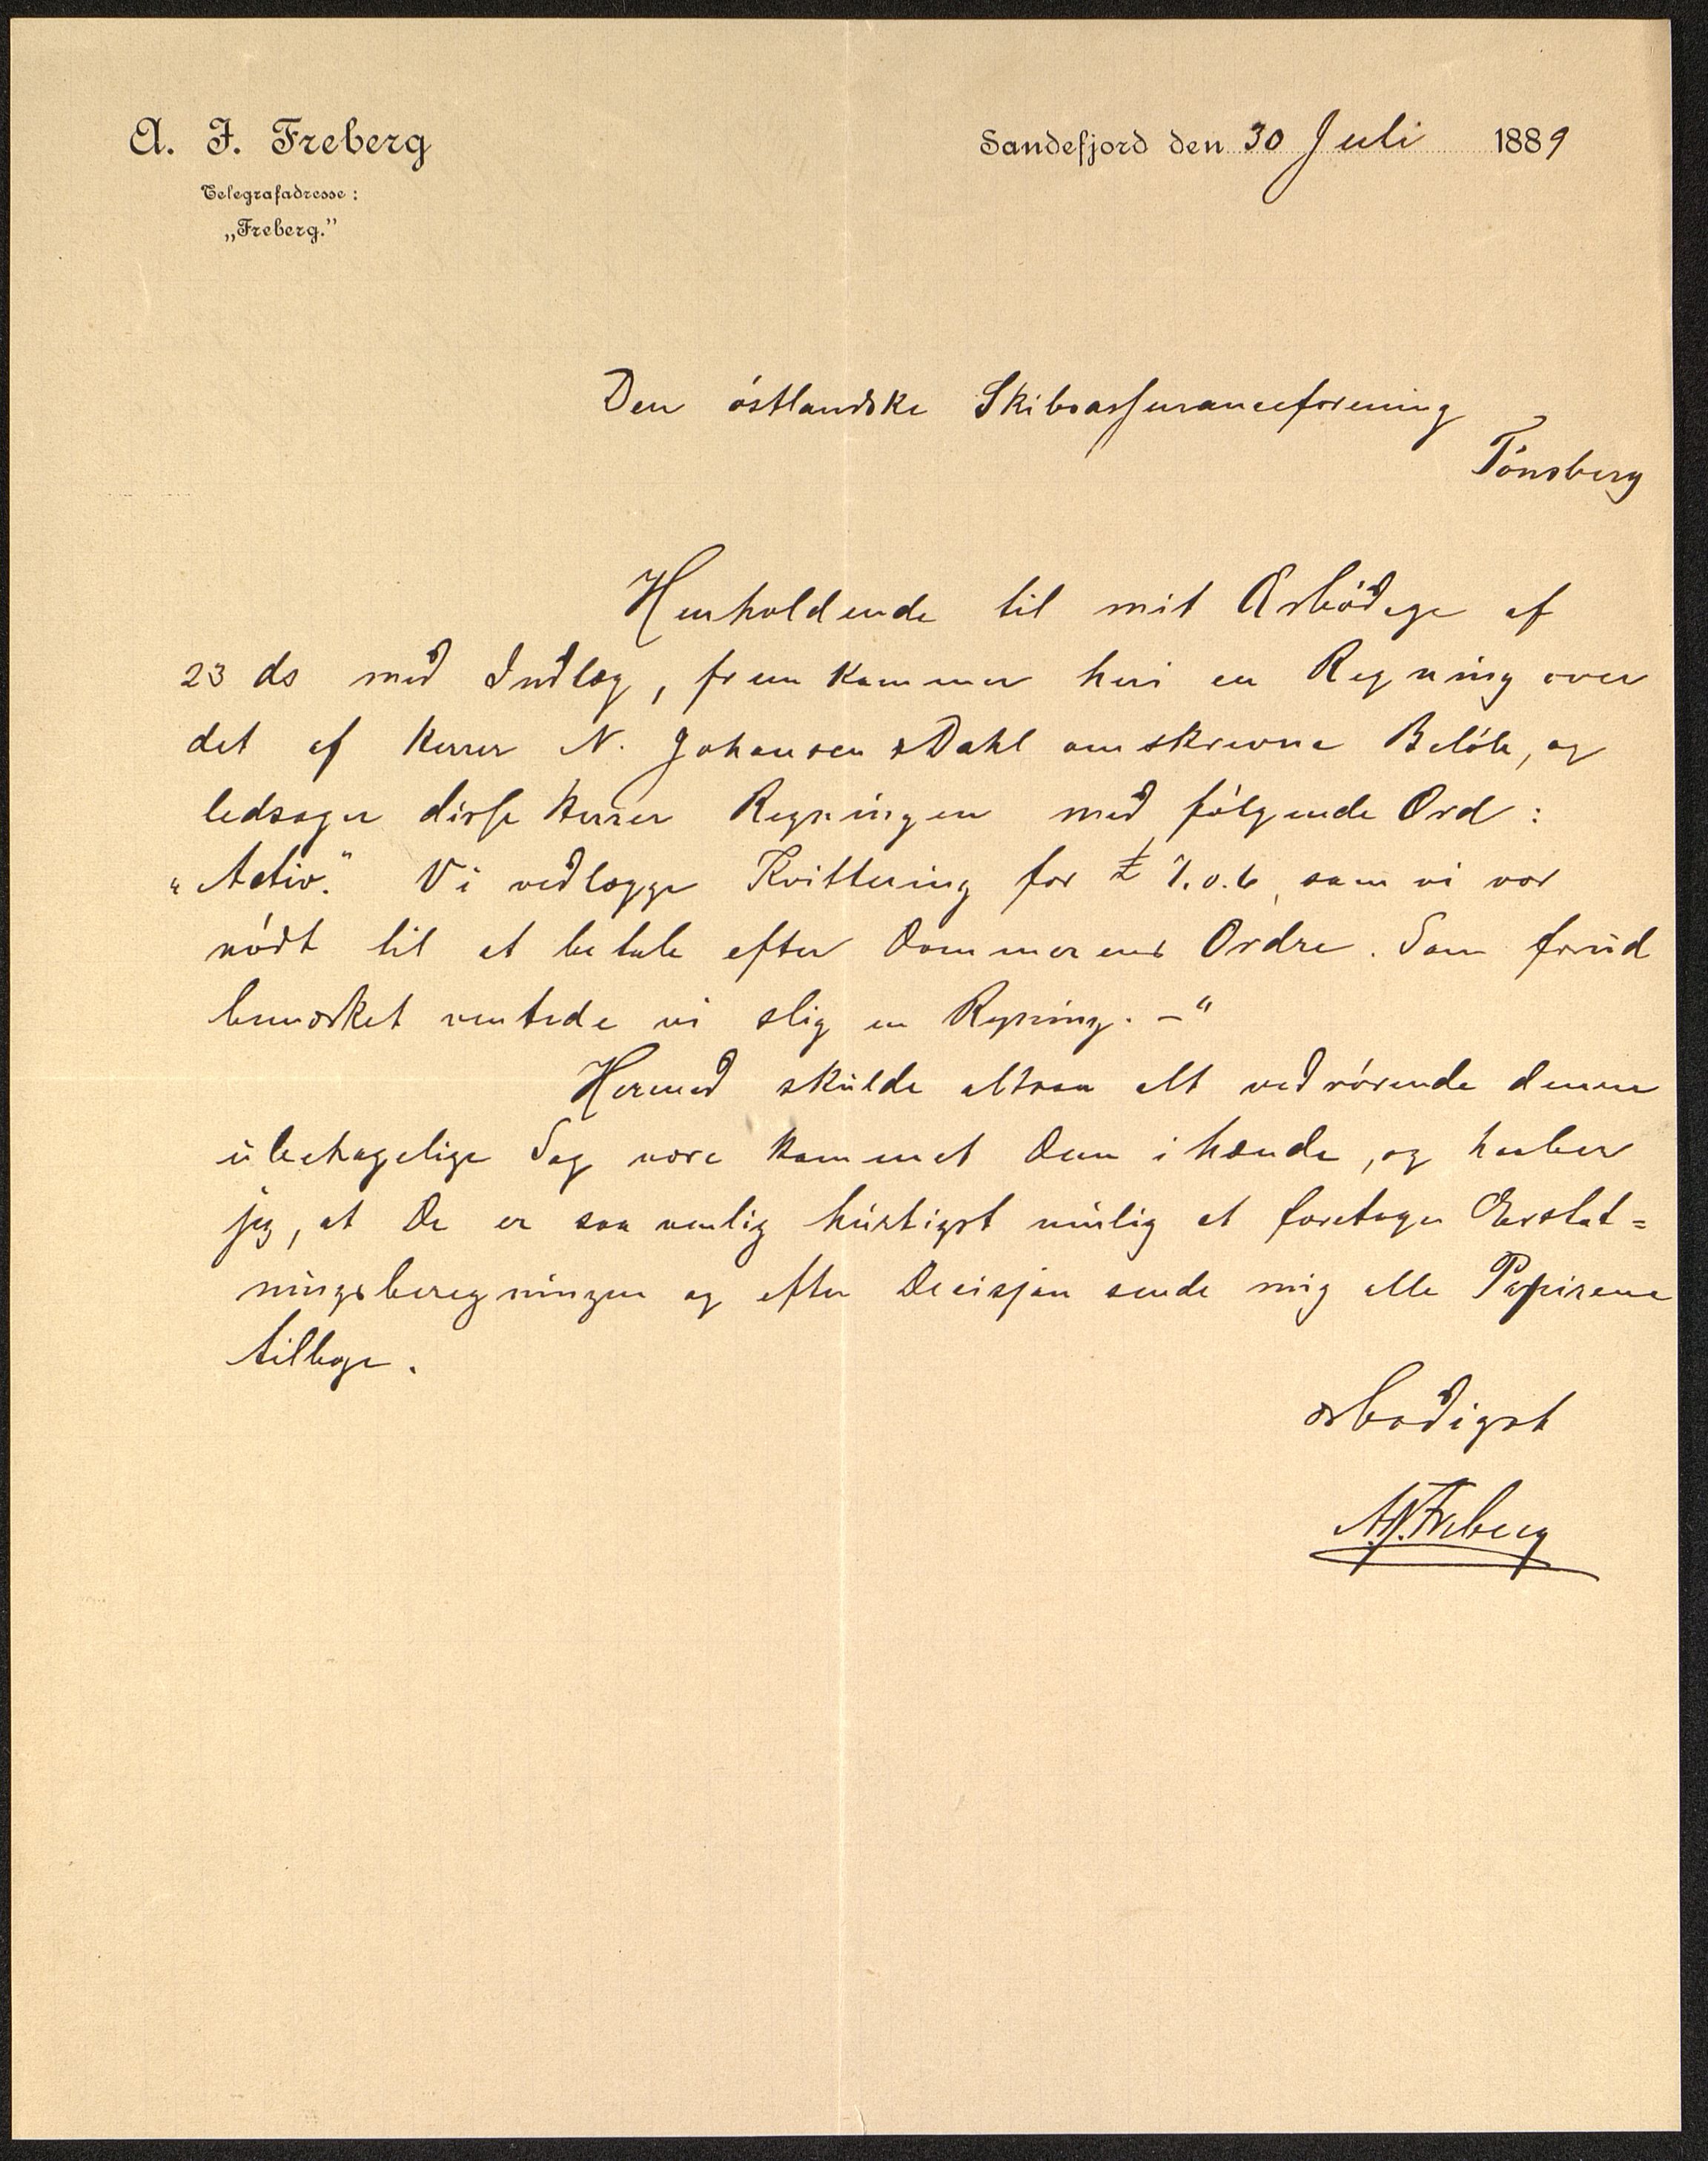 A. J. Freberg
Telegrafadresse:
„Freberg.”
Sandefjord den 30 Juli 1889
Den östlandske Skibsassuranceforening
Tönsberg
Henholdende til mit Ærbödige af
23 ds med Indlæg, fremkommer heri en Regning over
det af Herrer N. Johansen & Dahl omskrevne Belöb, og
ledsager disse Herrer Regningen med fölgende Ord:
„Activ.” Vi vedlægge Kvittering for £ 7.0.6, som vi var
nödt til at betale efter Dommerens Ordre. Som forud
bemærket ventede vi slig en Regning. —“
Hermed skulde altsaa alt vedrörende denne
ubehagelige Sag være kommet Dem ihænde, og haaber
jeg, at De er saa venlig hurtigst mulig at foretage Erstat=
ningsberegningen og efter Decisjon sende mig alle Papirene
tilbage.
Ærbödigst
A. J. Freberg